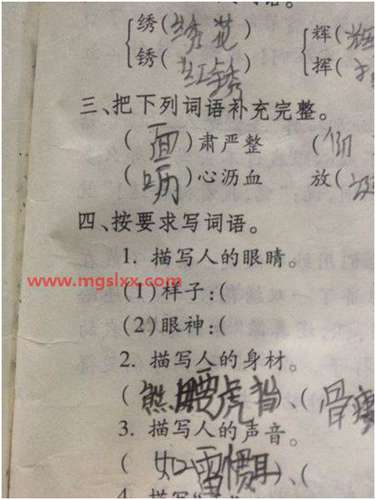 绣(绣花) 辉(
锈(红锈) 挥(
三、把下列词语补充完整。
(面)肃严整 (
(呖)心沥血 放(
四、按要求写词语。
1. 描写人的眼睛。
www.mgslxx.com
(1)样子:(
(2)眼神:(
2. 描写人的身材。
(熊腰虎背)、(骨瘦
3. 描写人的声音。
(如雷惯耳)、(
4. 描写